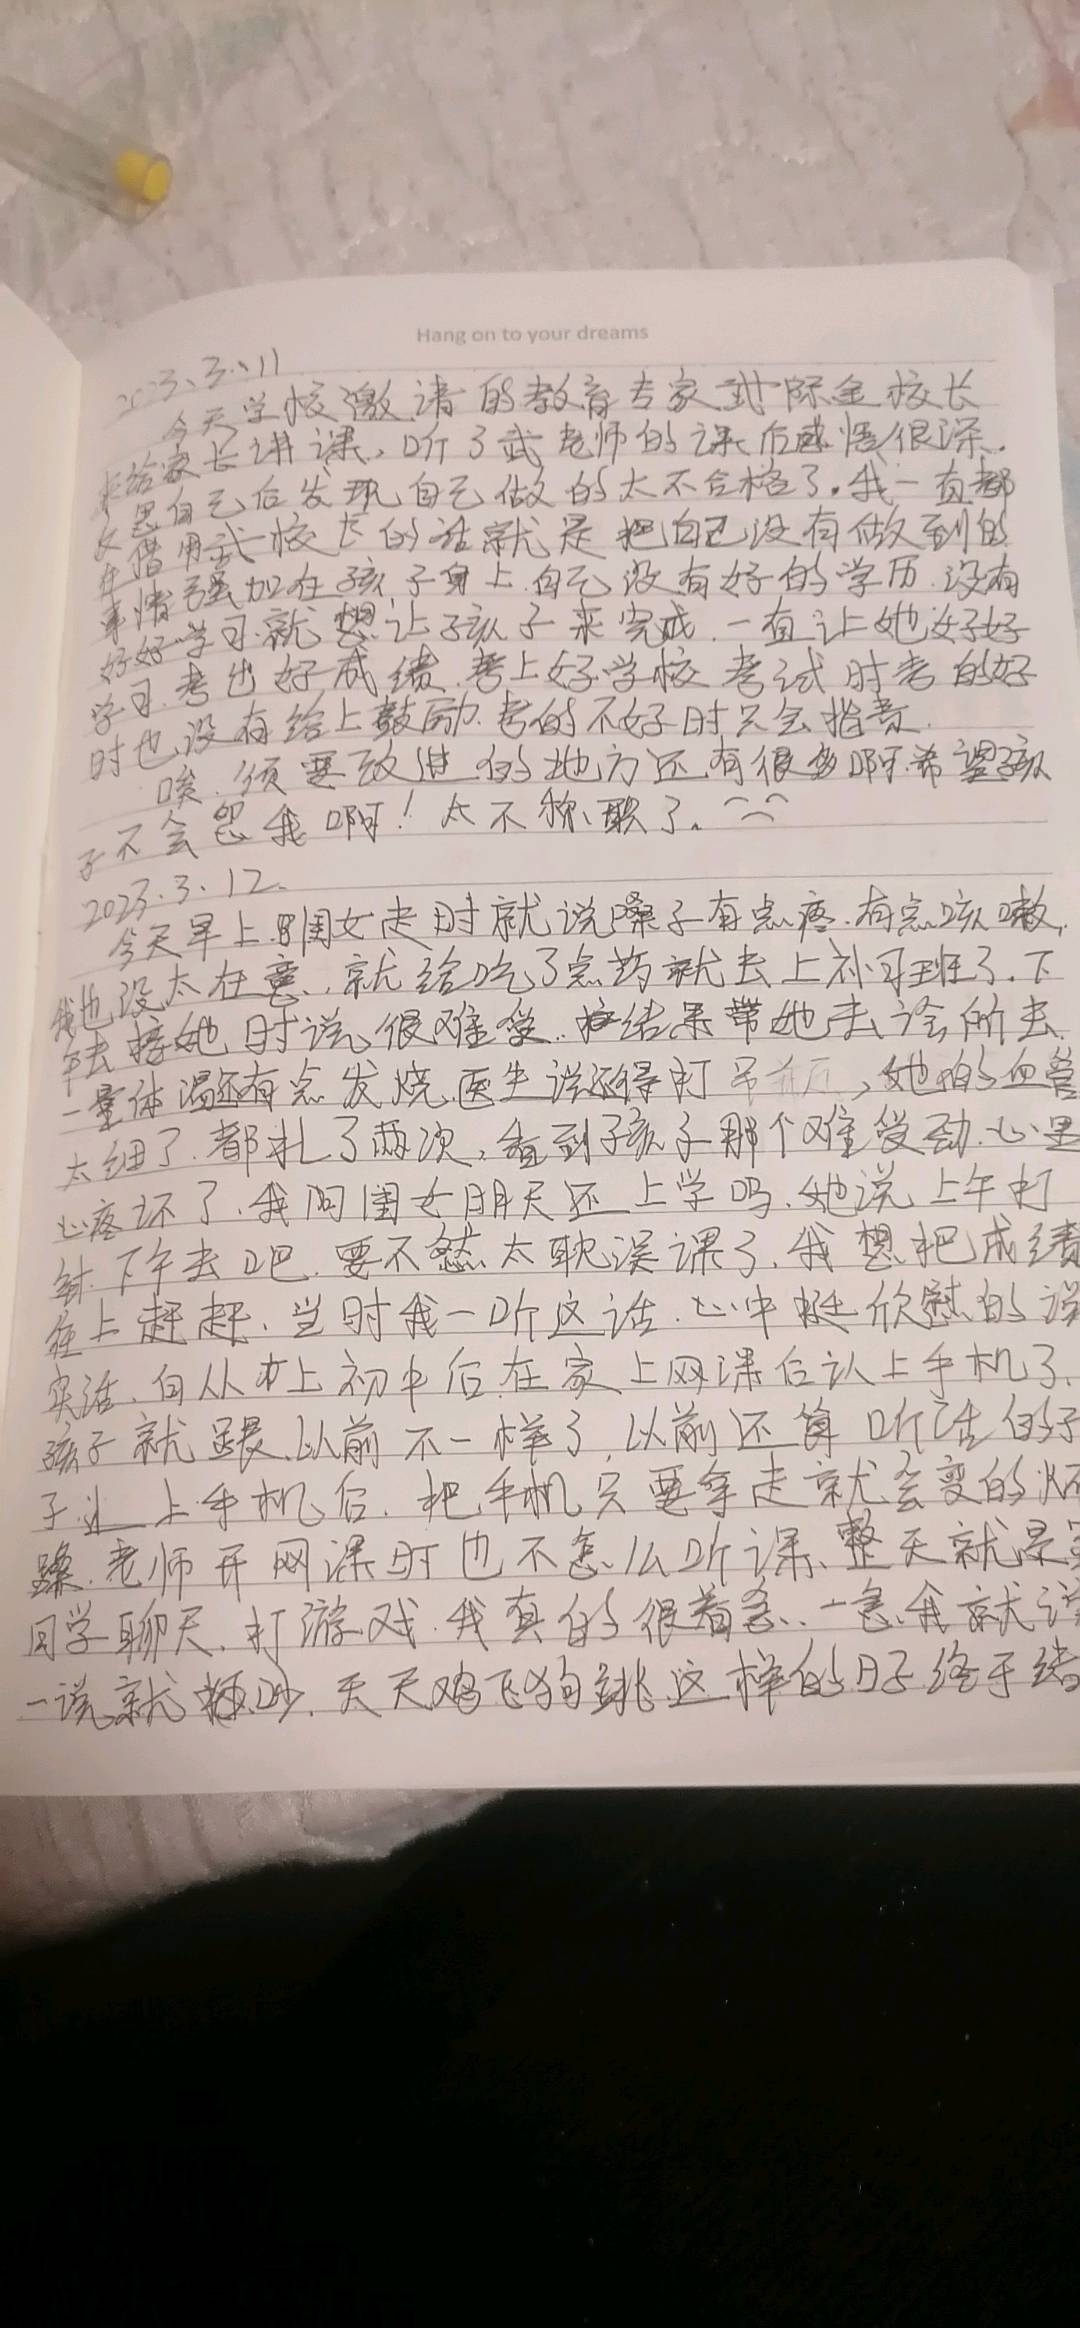 Hang on to your dreams
2023.3.11
今天学校邀请的教育专家武际金校长
来给家长讲课,听了武老师的课后感悟很深.
反思自己后发现自己做的太不合格了.我一直都
在借用武校长的话就是把自己没有做到的
事情强加在孩子身上.自己没有好的学历.没有
好好学习.就想让孩子来完成.一直让她好好
学习.考出好成绩.考上好学校.考试时考的好
时也没有给上鼓励.考的不好时只会指责.
唉.须要改进的地方还有很多啊.希望孩
子不会怨我啊!太不称职了.
2023.3.12.
今天早上.闺女走时就说嗓子有点疼.有点咳嗽,
我也没太在意.就给吃了点药就去上补习班了.下
午去接她时说很难受.结果带她去诊所去
一量体温还有点发烧.医生说还得打吊,她的血管
太细了.都扎了两次,看到孩子那个难受劲.心里
心疼坏了.我问闺女明天还上学吗.她说上午打
针.下午去吧.要不然太耽误课了.我想把成绩
往上赶赶.当时我一听这话.心中挺欣慰的说
实话.自从上初中后在家上网课后认上手机了.
孩子就跟以前不一样了.以前还算听话的孑
子.上手机后.把手机只要拿走就会变的烦
躁.老师开网课时也不怎么听课.整天就是
同学聊天.打游戏.我真的很着急.一急我就说
一说就吵.天天鸡飞狗跳.这样的日子终于结